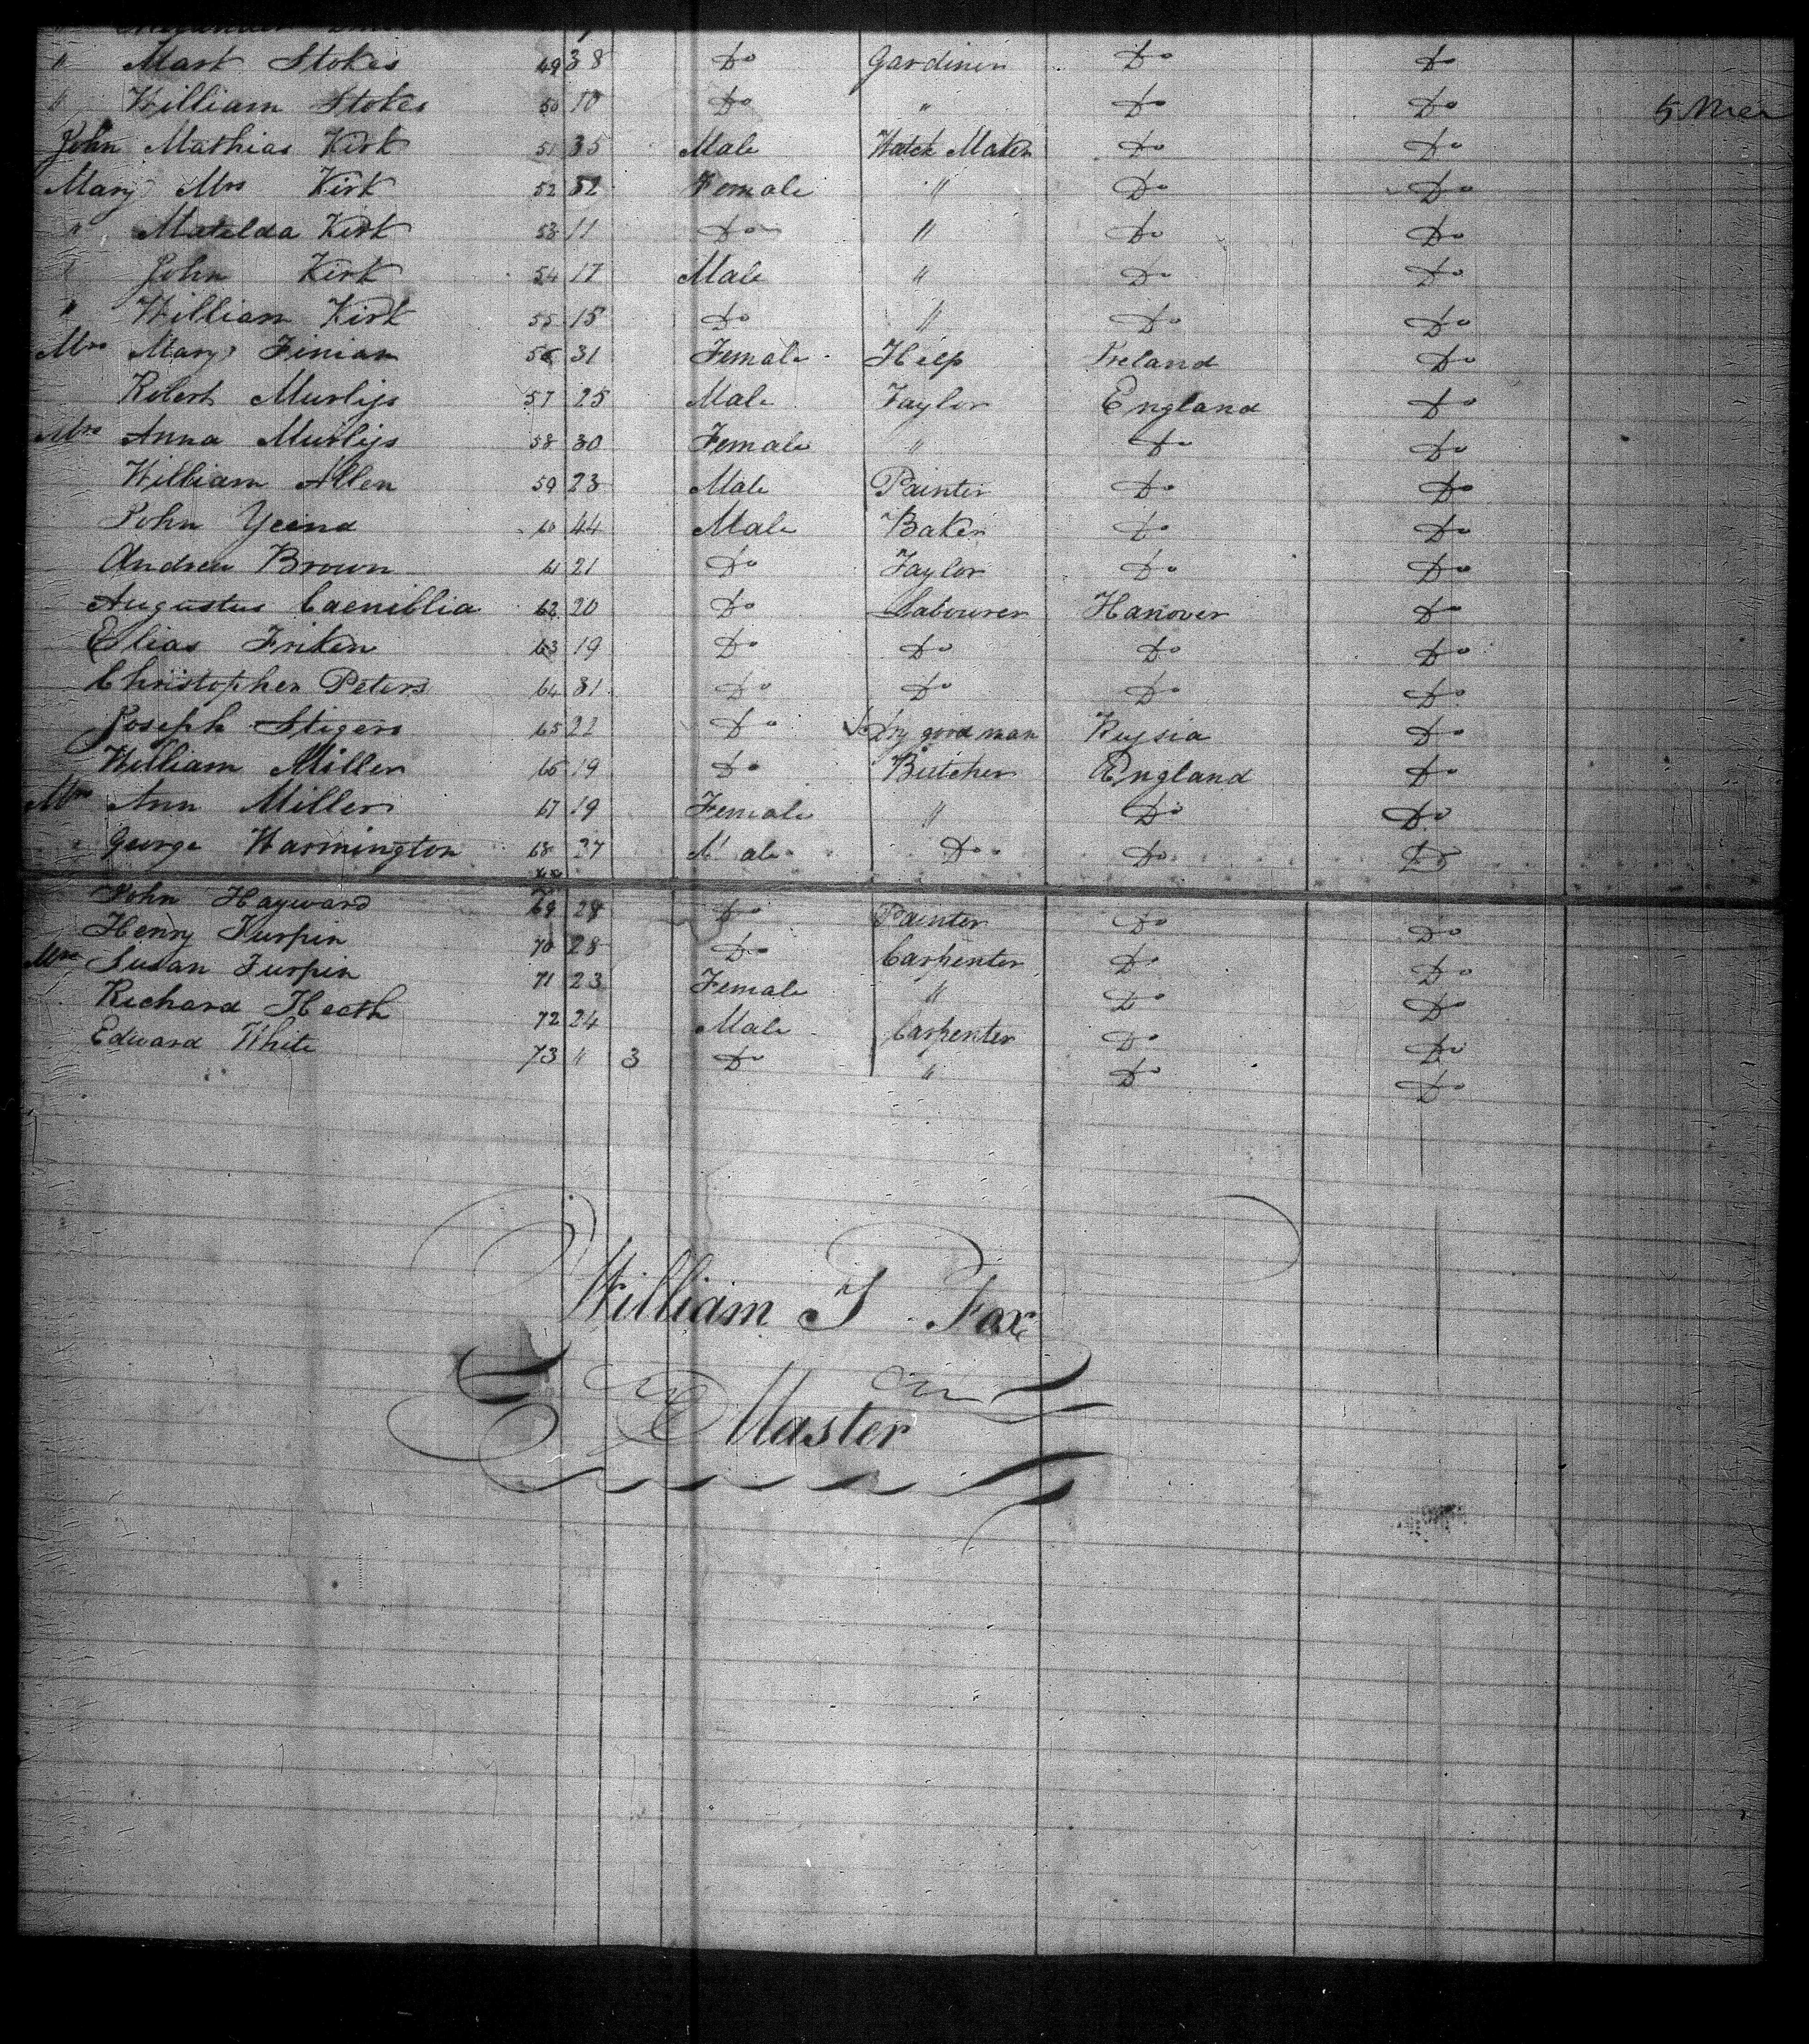 " Mark Stokes 49 38 Do Gardiner Do Do
" William Stokes 50 10 Do " Do Do 5 Mer
John Mathias Kirk 51 35 Male Watch Maker Do Do
Mary Mrs Kirk 52 32 Female " Do Do
" Matelda Kirk 53 11 Do " Do Do
" John Kirk 54 17 Male " Do Do
" William Kirk 55 15 Do " Do Do
Mrs Mary Finian 56 31 Female Help Ireland Do
Robert Murlijs 57 25 Male Taylor England Do
Mrs Anna Murlijs 58 30 Female " Do Do
William Allen 59 23 Male Painter Do Do
John Yeend 60 44 Male Baker Do Do
Andrew Brown 61 21 Do Taylor Do Do
Augustus 62 20 Do Labourer Hanover Do
Elias Friken 63 19 Do Do Do Do
Christopher Peters 64 31 Do Do Do Do
Joseph Stigers 65 22 Do Dry good man Russia Do
William Miller 66 19 Do Butcher England Do
Mrs Ann Miller 67 19 Female " Do Do
George Warmington 68 27 Male Do Do Do
John Hayward 69 28 Do Painter Do Do
Henry Turpin 70 28 Do Carpenter Do Do
Mrs Susan Turpin 71 23 Female " Do Do
Richard Heath 72 24 Male Carpenter Do Do
Edward White 73 " 3 Do " Do Do
William T Fox
Master